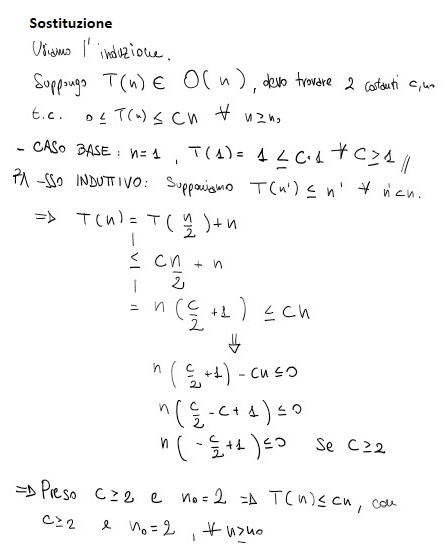 Sostituzione
Usiamo l'induzione.
Suppongo T(n) ∈ O(n), devo trovare 2 costanti c, n₀
t.c. 0 ≤ T(n) ≤ cn ∀ n ≥ n₀
- CASO BASE: n=1, T(1) = 1 ≤ C·1 ∀ C ≥ 1 //
PASSO INDUTTIVO: Supponiamo T(n') ≤ n' ∀ n'<n.
⇒ T(n) = T(n/2)+n
≤ Cn/2 + n
= n(c/2 + 1) ≤ Cn
⇓
n(c/2 + 1) - cn ≤ 0
n(c/2 - c + 1) ≤ 0
n(-c/2 + 1) ≤ 0 Se C ≥ 2
⇒ Preso C ≥ 2 e n₀ = 2 ⇒ T(n) ≤ cn, con
C ≥ 2 e n₀ = 2, ∀ n ≥ n₀